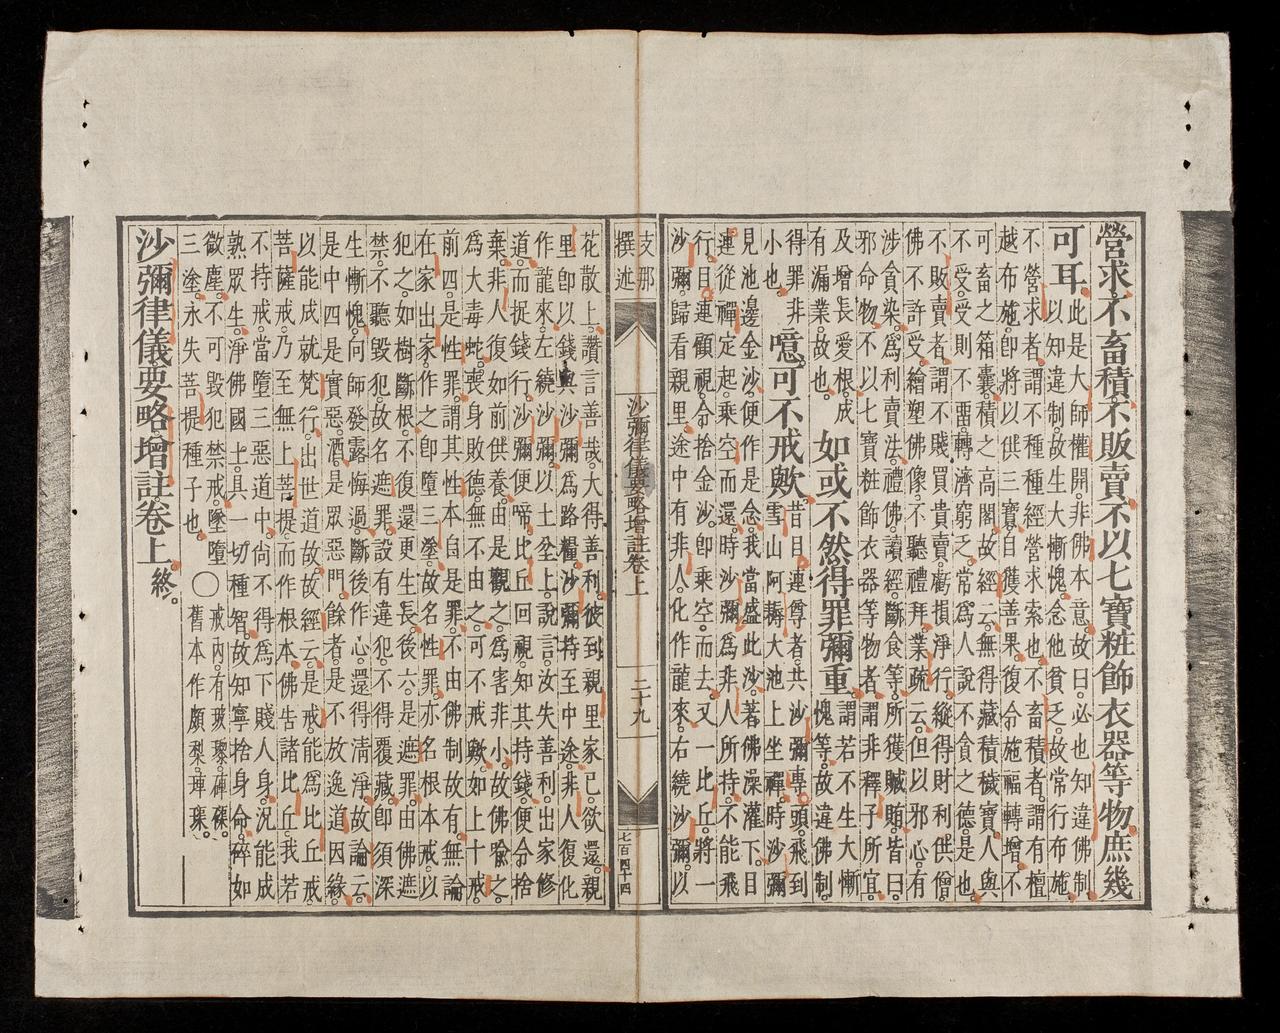 營求。不畜積。不販賣。不以七寶粧飾衣器等物。庶幾
可耳。此是大師權開。非佛本意。故曰。必也知違佛制。
以知違制。故生大慚愧。念他貧乏。故常行布施。
不營求者。謂不種種經營求索也。不畜積者。謂有檀
越布施。即將以供三寶。自獲善果。復令施福轉增。不
可畜之箱囊。積之高閣。故經云。無得藏積穢寶。人與
不受。受則不畱。轉濟窮乏。常爲人說不貪之德。是也。
不販賣者。謂不賤買貴賣。虧損淨行。縱得財利。供僧
佛不許受。繪塑佛像。不聽禮拜。業疏云。但以邪心。有
涉貪染。爲利賣法。禮佛。讀經。斷食等。所獲贓賄。皆曰
邪命物。不以七寶粧飾衣器等物者。謂非釋子所宜。
及增長愛根。成如或不然。得罪彌重。謂若不生大慚
有漏業。故也。愧等。故違佛制。
得罪非噫。可不戒歟。昔目連尊者。共沙彌專頭。飛到
小也。雪山阿耨大池上坐禪。時沙彌
見池邊金沙。便作是念。我當盛此沙。著佛澡灌下。目
連從禪定起。乘空而還。時沙彌爲非人所持。不能飛
行。目連顧視。令捨金沙。即乘空而去。又一比丘。將一
沙彌。歸看親里。途中有非人。化作龍來。右繞沙彌。以
支那
撰述
沙彌律儀要略增註卷上
二十九
七百四十四
花散上。讚言善哉。大得善利。彼到親里家已。欲還。親
里即以錢與沙彌爲路糧。沙彌持至中途。非人復化
作龍來。左繞沙彌。以土坌上。說言。汝失善利。出家修
道。而捉錢行。沙彌便啼。比丘回視。知其持錢。便令捨
棄。非人復如前供養。由是觀之。爲害非小。故佛喻之
爲大毒蛇。喪身敗德。無不由之。可不戒歟。如上十戒。
前四是性罪。謂其性本自是罪。不由佛制故有。無論
在家出家。作之即墮三塗。故名性罪。亦名根本戒。以
犯之。如樹斷根。不復還更生長。後六。是遮罪。由佛遮
禁。不聽毀犯。故名遮罪。設有違犯。不得覆藏。即須深
生慚愧。向師發露悔過。斷後作心。還得淸淨。故論云。
是中四是實惡。酒。是眾惡門。餘者。是不放逸道因緣。
以能成就梵行。出世道故。故經云。是戒。能爲比丘戒。
菩薩戒。乃至無上菩提。而作根本。佛告諸比丘。我若
不持戒。當墮三惡道中。尙不得爲下賤人身。況能成
熟眾生。淨佛國土。具一切種智。故知寧捨身命。碎如
微塵。不可毀犯禁戒。墜墮〇戒內。有玻瓈。硨磲。
三塗。永失菩提種子也。舊本作頗棃。琕璖。
沙彌律儀要略增註卷上終。